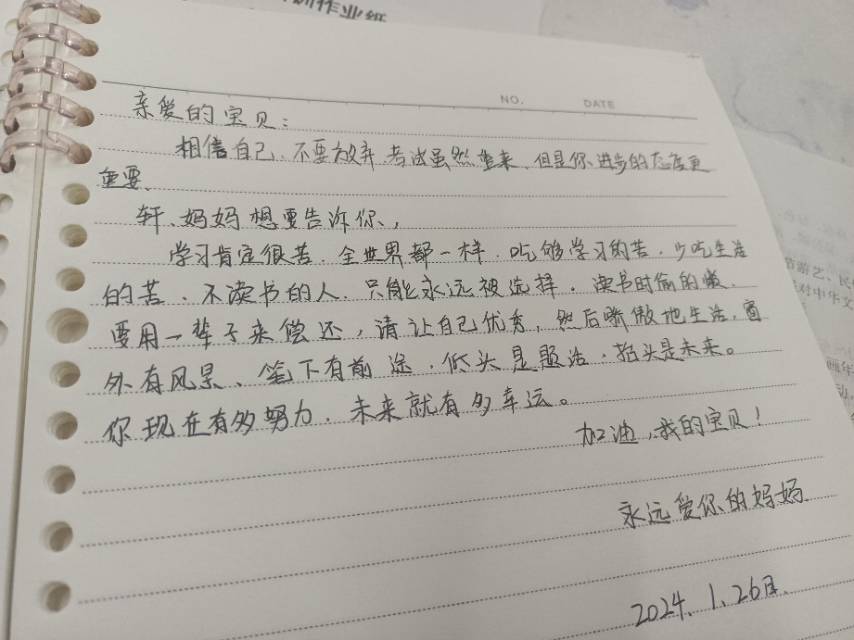 训作业纸
NO. DATE
亲爱的宝贝：
相信自己、不要放弃 考试虽然重来、但是你进步的态度更
重要、
轩、妈妈想要告诉你、
学习肯定很苦、全世界都一样、吃够学习的苦、少吃生活
的苦、不读书的人、只能永远被选择、读书时偷的懒、
要用一辈子来偿还，请让自己优秀，然后骄傲地生活，窗
外有风景、笔下有前途、低头是题海、抬头是未来。
你现在有多努力、未来就有多幸运。
加油，我的宝贝！
永远爱你的妈妈
2024.1.26日.
节游艺、民
对中华文